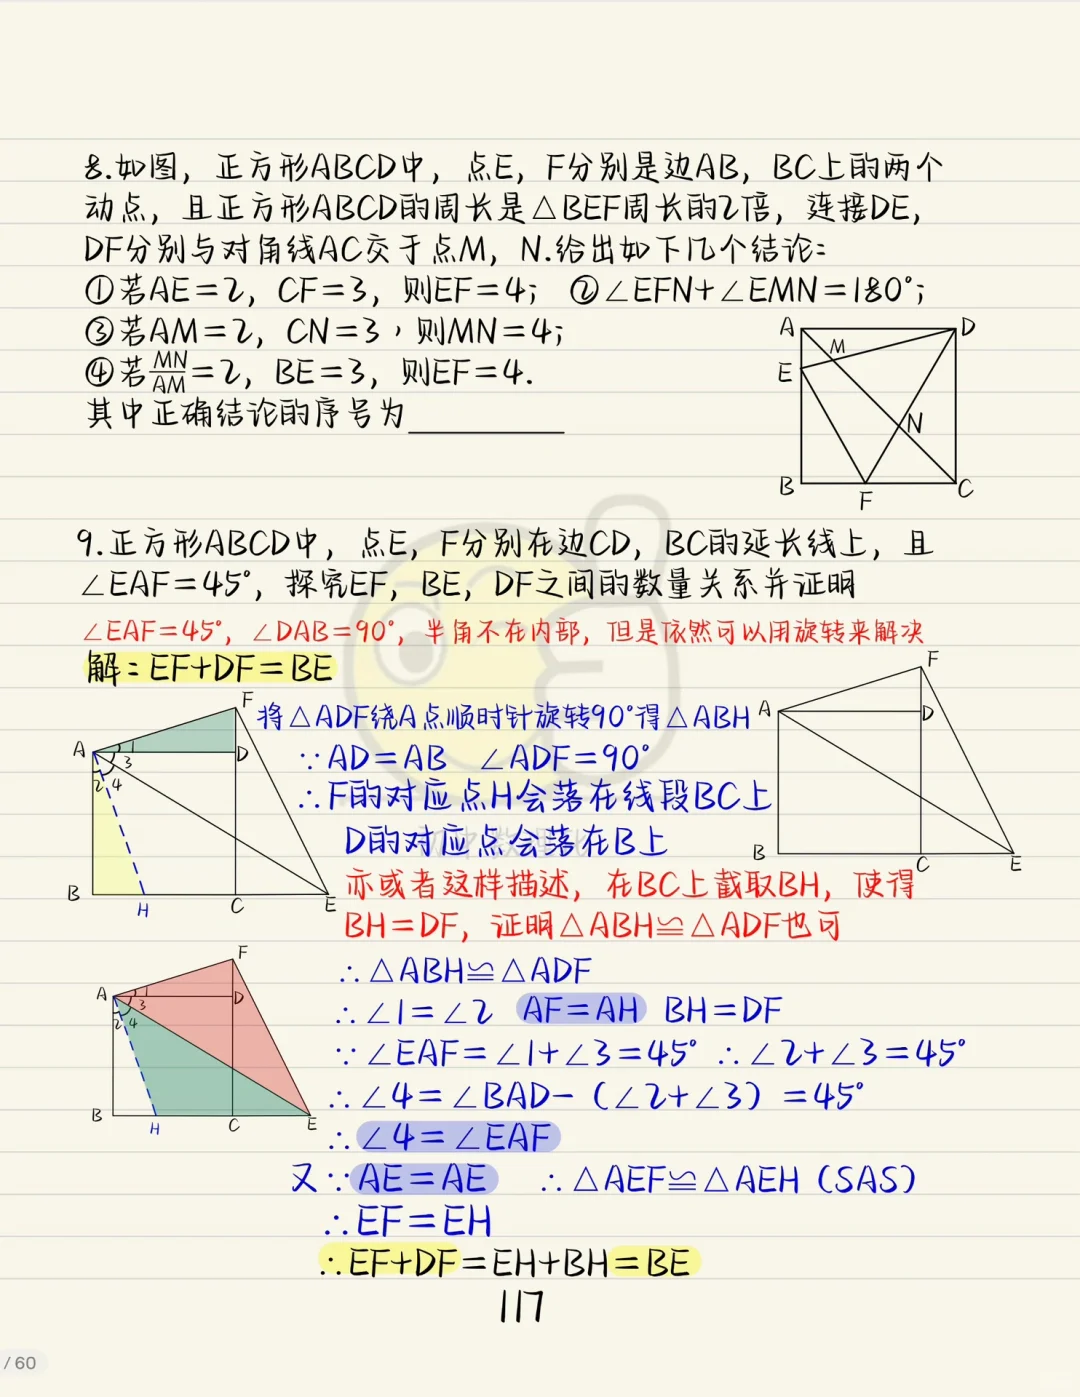 8.如图，正方形ABCD中，点E，F分别是边AB，BC上的两个
动点，且正方形ABCD的周长是△BEF周长的2倍，连接DE，
DF分别与对角线AC交于点M，N.给出如下几个结论：
①若AE=2，CF=3，则EF=4；②∠EFN+∠EMN=180°；
③若AM=2，CN=3，则MN=4；
④若MN/AM=2，BE=3，则EF=4.
其中正确结论的序号为
A D
M
E
N
B F C
9.正方形ABCD中，点E，F分别在边CD，BC的延长线上，且
∠EAF=45°，探究EF，BE，DF之间的数量关系并证明
∠EAF=45°，∠DAB=90°，半角不在内部，但是依然可以用旋转来解决
解：EF+DF=BE
F
A 1 D
3
2 4
B H C E
将△ADF绕A点顺时针旋转90°得△ABH
∵AD=AB ∠ADF=90°
∴F的对应点H会落在线段BC上
D的对应点会落在B上
F
A D
B C E
亦或者这样描述，在BC上截取BH，使得
BH=DF，证明△ABH≌△ADF也可
F
A 1 D
3
2 4
B H C E
∴△ABH≌△ADF
∴∠1=∠2 AF=AH BH=DF
∵∠EAF=∠1+∠3=45° ∴∠2+∠3=45°
∴∠4=∠BAD-（∠2+∠3）=45°
∴∠4=∠EAF
又∵AE=AE ∴△AEF≌△AEH（SAS）
∴EF=EH
∴EF+DF=EH+BH=BE
117
/ 60